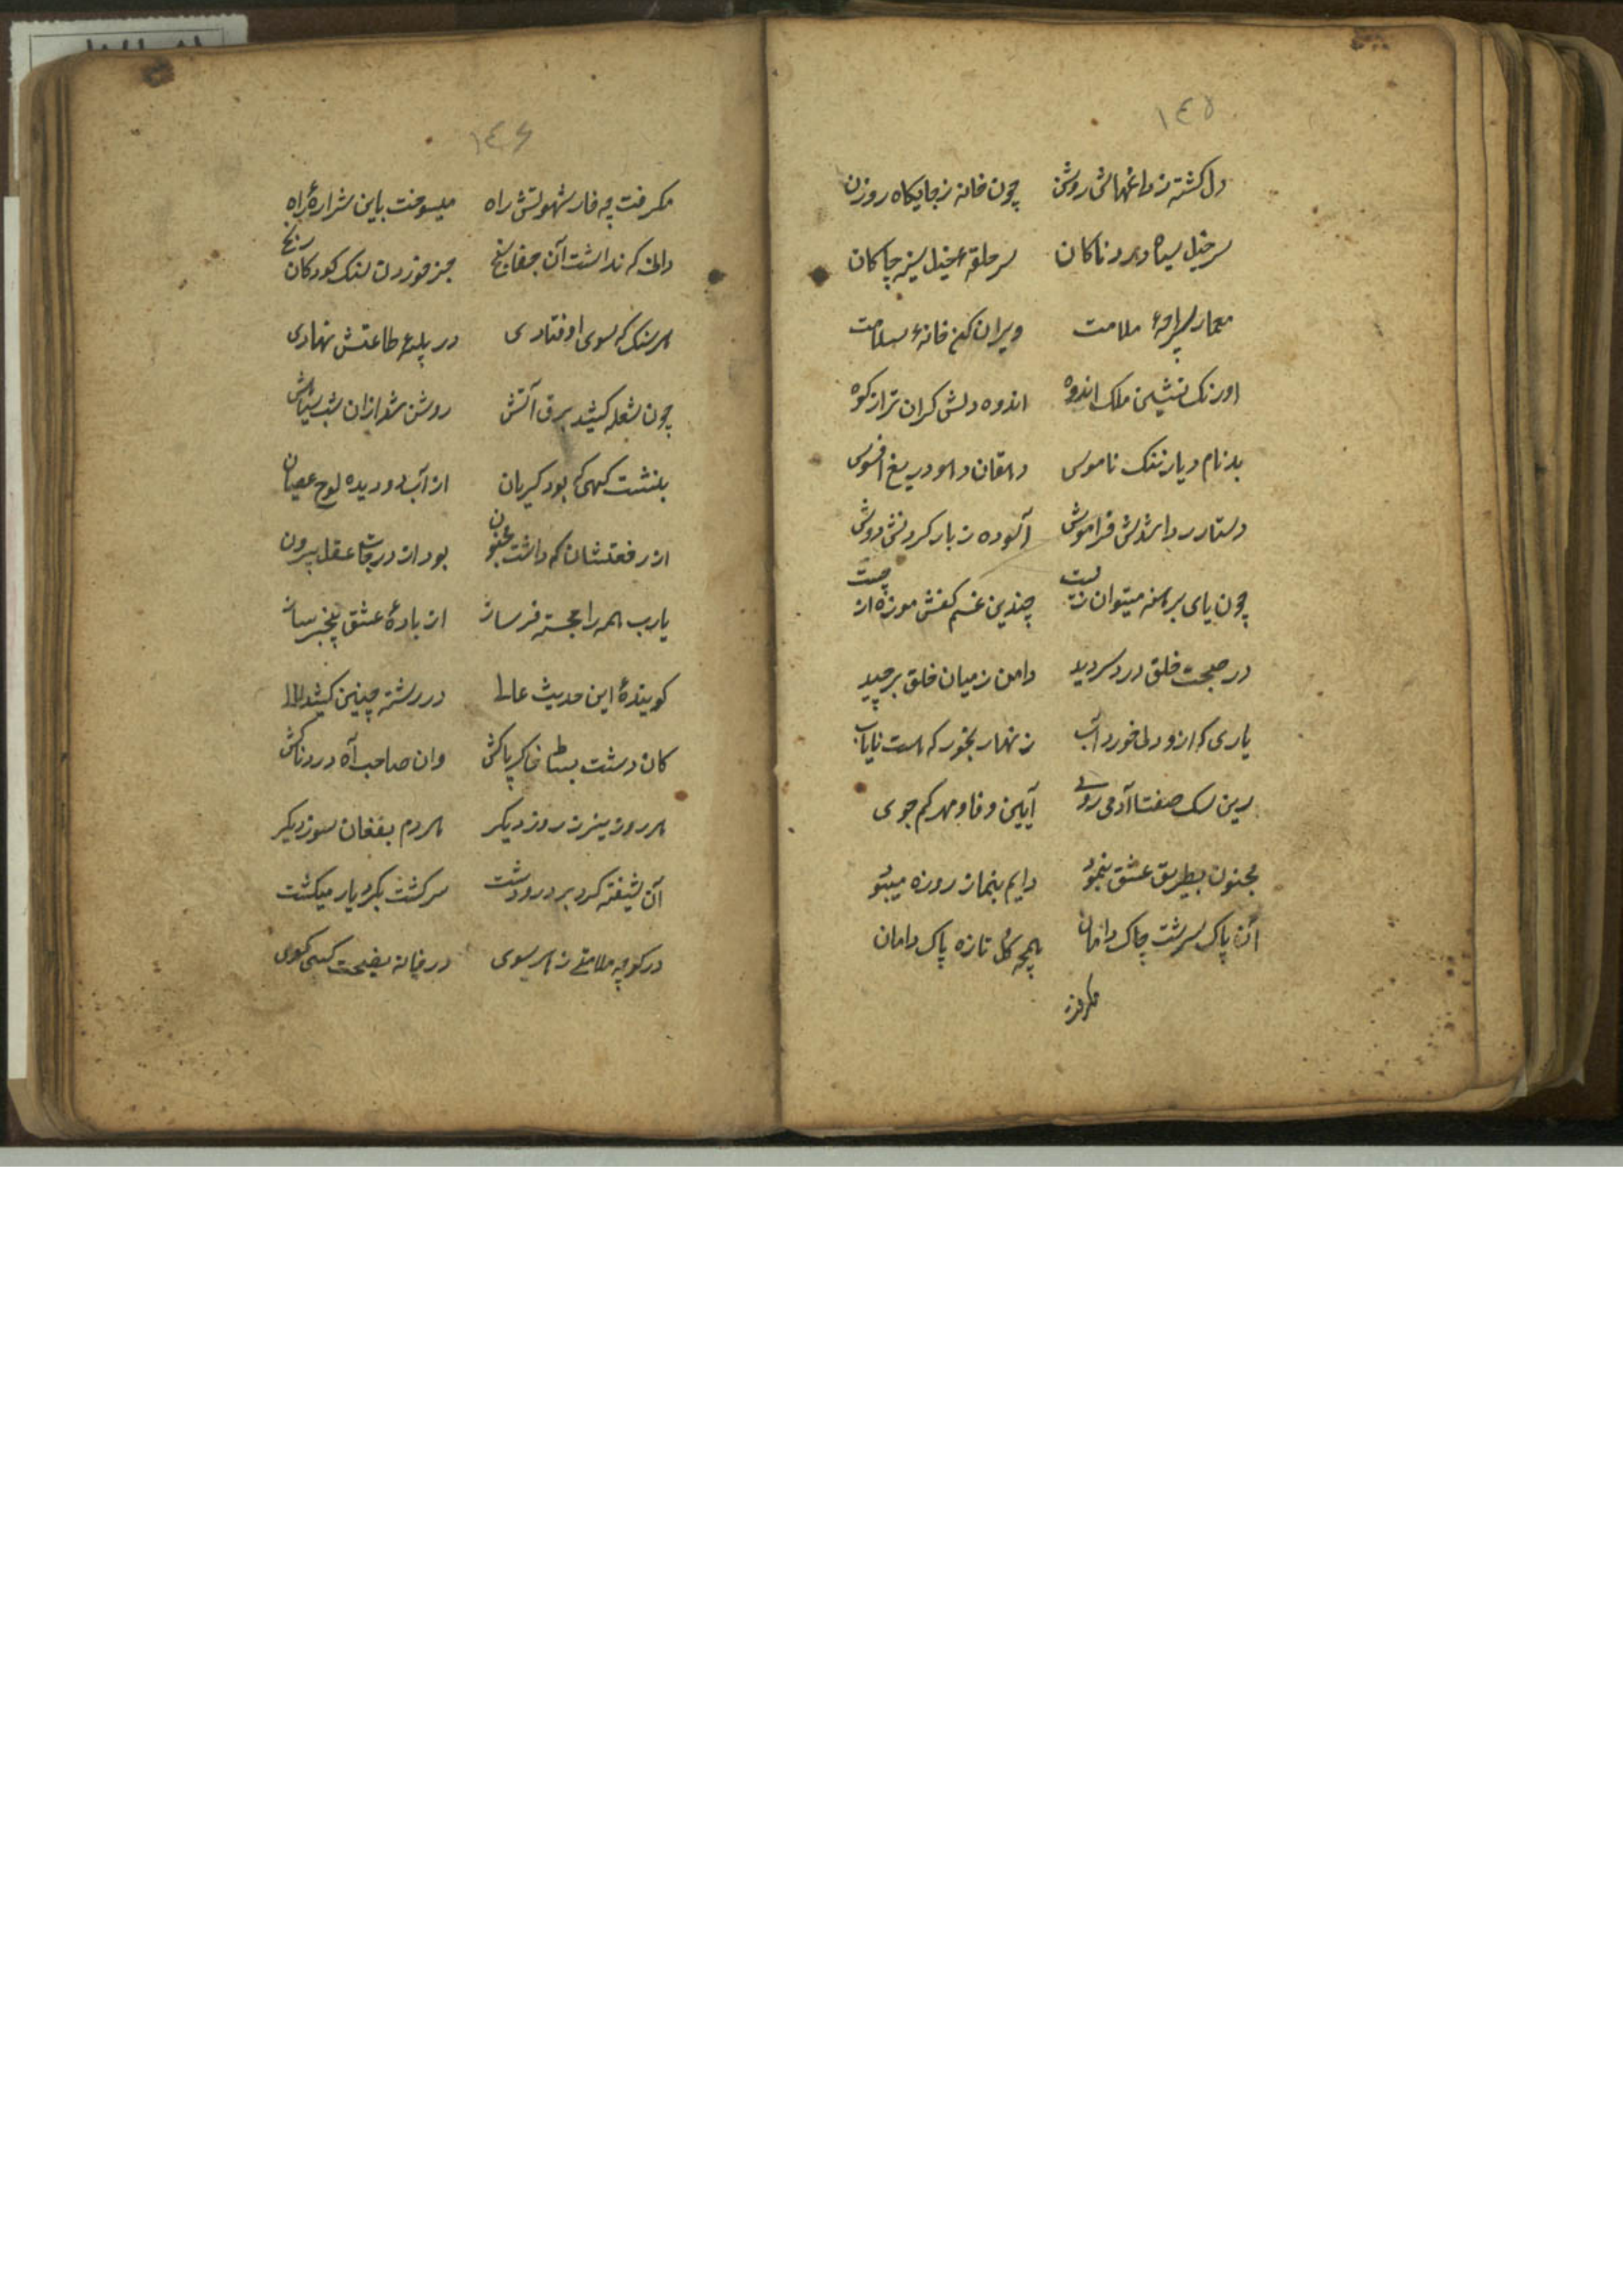 ١٤٥
دل کشته ز داغهاش روشن چون خانه ز جایکاه روزن
سرخیل سپاه دردناکان سر حلقهٔ خیل سینه چاکان
معمار سراچهٔ ملامت ویران کن خانهٔ سلامت
اورنک نشین ملک اندوه اندوه دلش کران تر از کوه
بدنام دیار ننک ناموس دهقان ده و دریغ افسوس
دستار ردا شدش فراموش آسوده ز بار کردنش دوش
چون پای برهنه میتوان زیست چندین غم کفش موزه از چیست
در صحبت خلق درد سر دید دامن ز میان خلق برچید
یاری که ازو دل خورد آب زنهار مجور که هست نایاب
زین سک صفتان آدمی روی آیین وفا و مهر کم جوی
مجنون بطریق عشق بنمود دایم بنماز روزه میبود
آن پاک سرشت چاک دامان همچو کل تازه پاک دامان
مکرفت
١٤٦
مکرفت چه خار شهوتش راه میسوخت باین شرارهٔ راه
دانی که نداشت آن جفا سنج جز خوردن سنک کودکان رنج
هر سنک که سوی او فتادی در پلهٔ طاعتش نهادی
چون شعله کشید برق آتش روشن شد ازان شب سیاهش
بنشست کهی که بود کریان از آب دو دیده لوح عصیان
از رفعت شان که داشت مجنون بود از درجات عقل بیرون
یارب همه را خجسته فر ساز از بادهٔ عشق بیخبر ساز
کویندهٔ این حدیث عالی در رشته چنین کشید لالی
کان دشت بساط خاک پاکش وان صاحب آه دردناکش
هر روز بتر ز روز دیکر هر دم بفغان سوز دیکر
آن شیفته کرد بر در و دشت سرکشت بکرد یار میکشت
در کوچه ملامتی ز هر سوی در خانه نصیحت کسی کوی